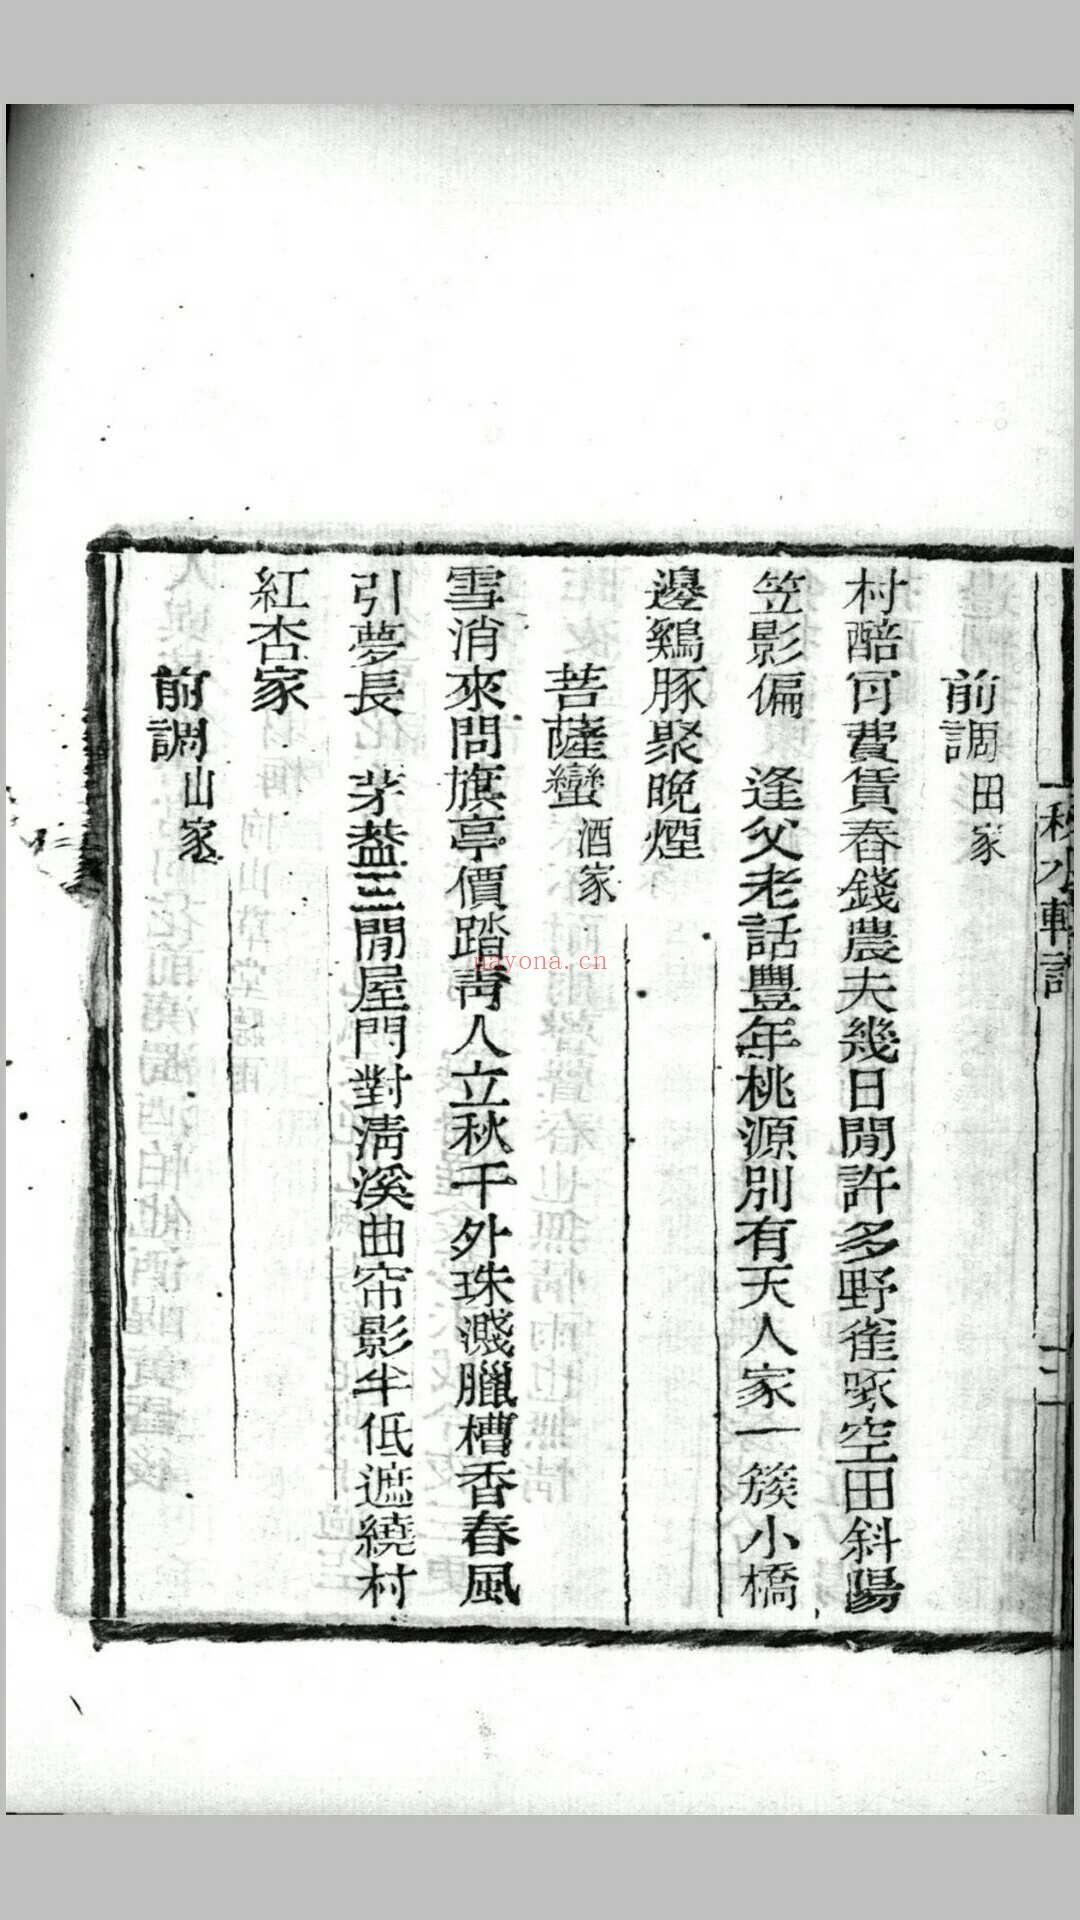 秋水軒詞
前調 田家
村醅何費賃舂錢農夫幾日閒許多野雀啄空田斜陽
笠影偏　逢父老話豐年桃源別有天人家一簇小橋
邊鷄豚聚晚煙
菩薩蠻 酒家
雪消來問旗亭價踏靑人立秋千外珠濺臘槽香春風
引夢長　茅葢三閒屋門對淸溪曲帘影半低遮繞村
紅杏家
前調 山家
nayona.cn